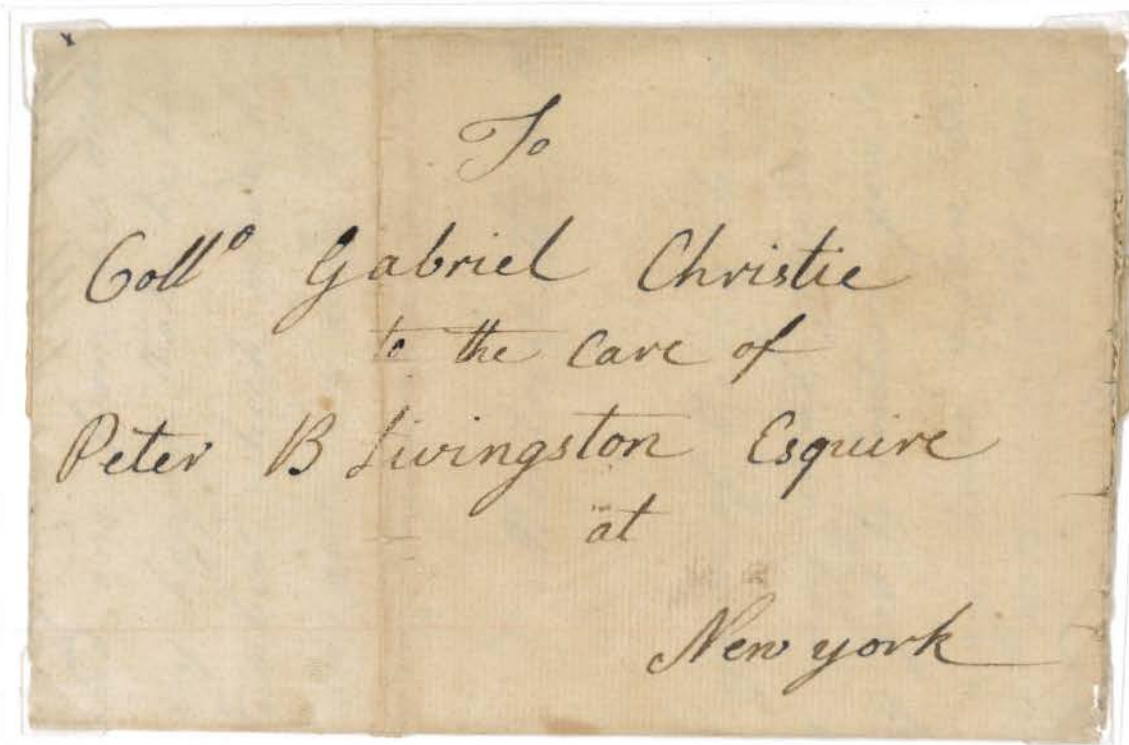 To
Coll° Gabriel Christie
to the care of
Peter B Livingston Esquire
at
New york